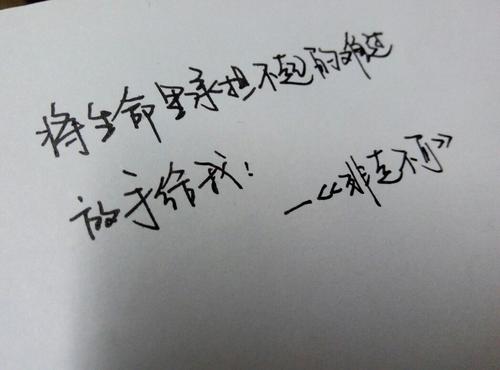 将生命里承担不起的难过
放手给我！
—《非走不可》